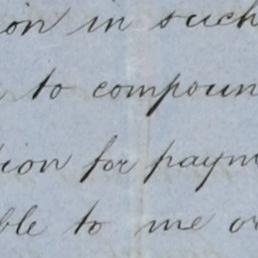 ion in such
to compoun
tion for paym
ble to me or